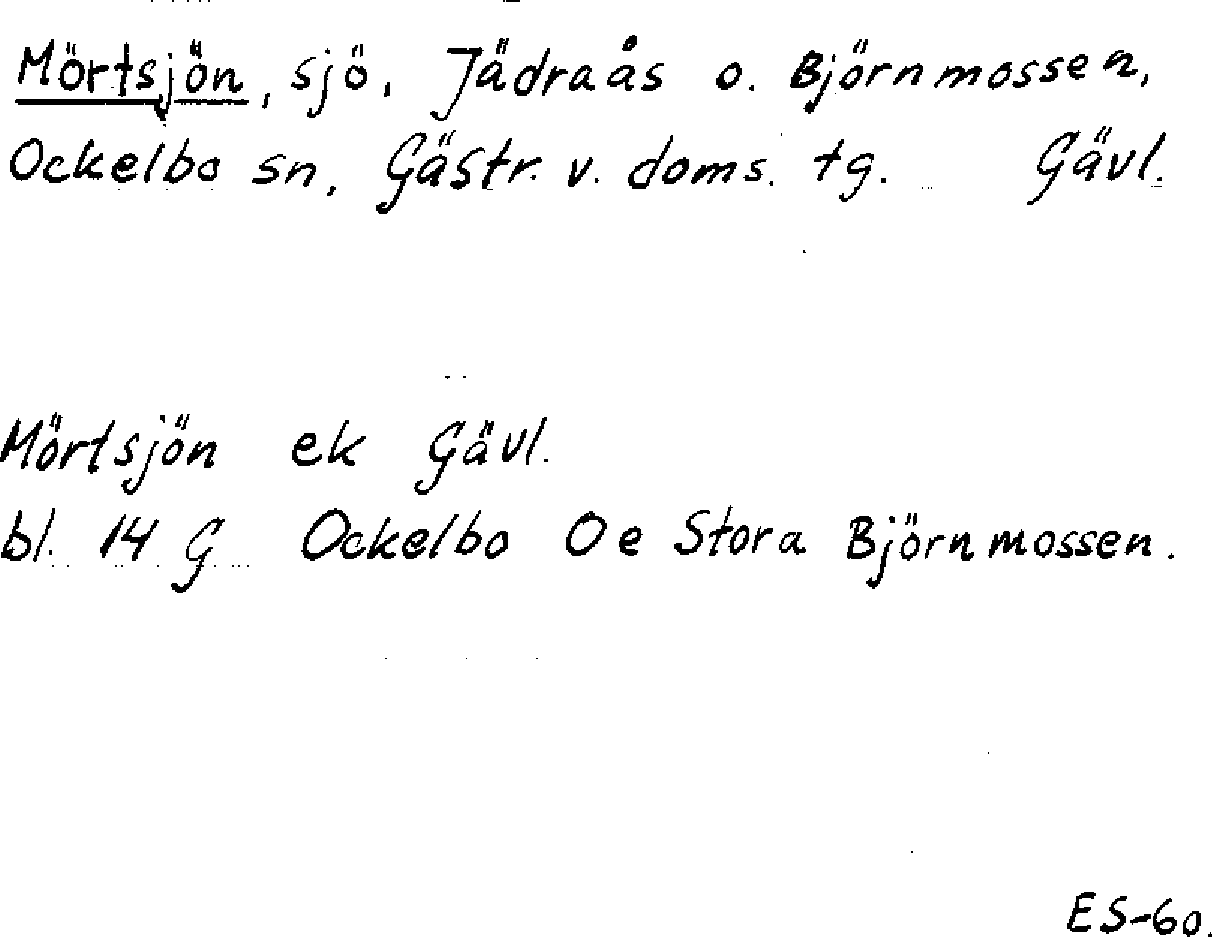 Mörtsjön, sjö, Jädraås o. Björnmossen,
Ockelbo sn, Gästr. v. doms. tg. Gävl.
Mörtsjön ek Gävl.
bl. 14 G Ockelbo Oe Stora Björnmossen.
ES-60.